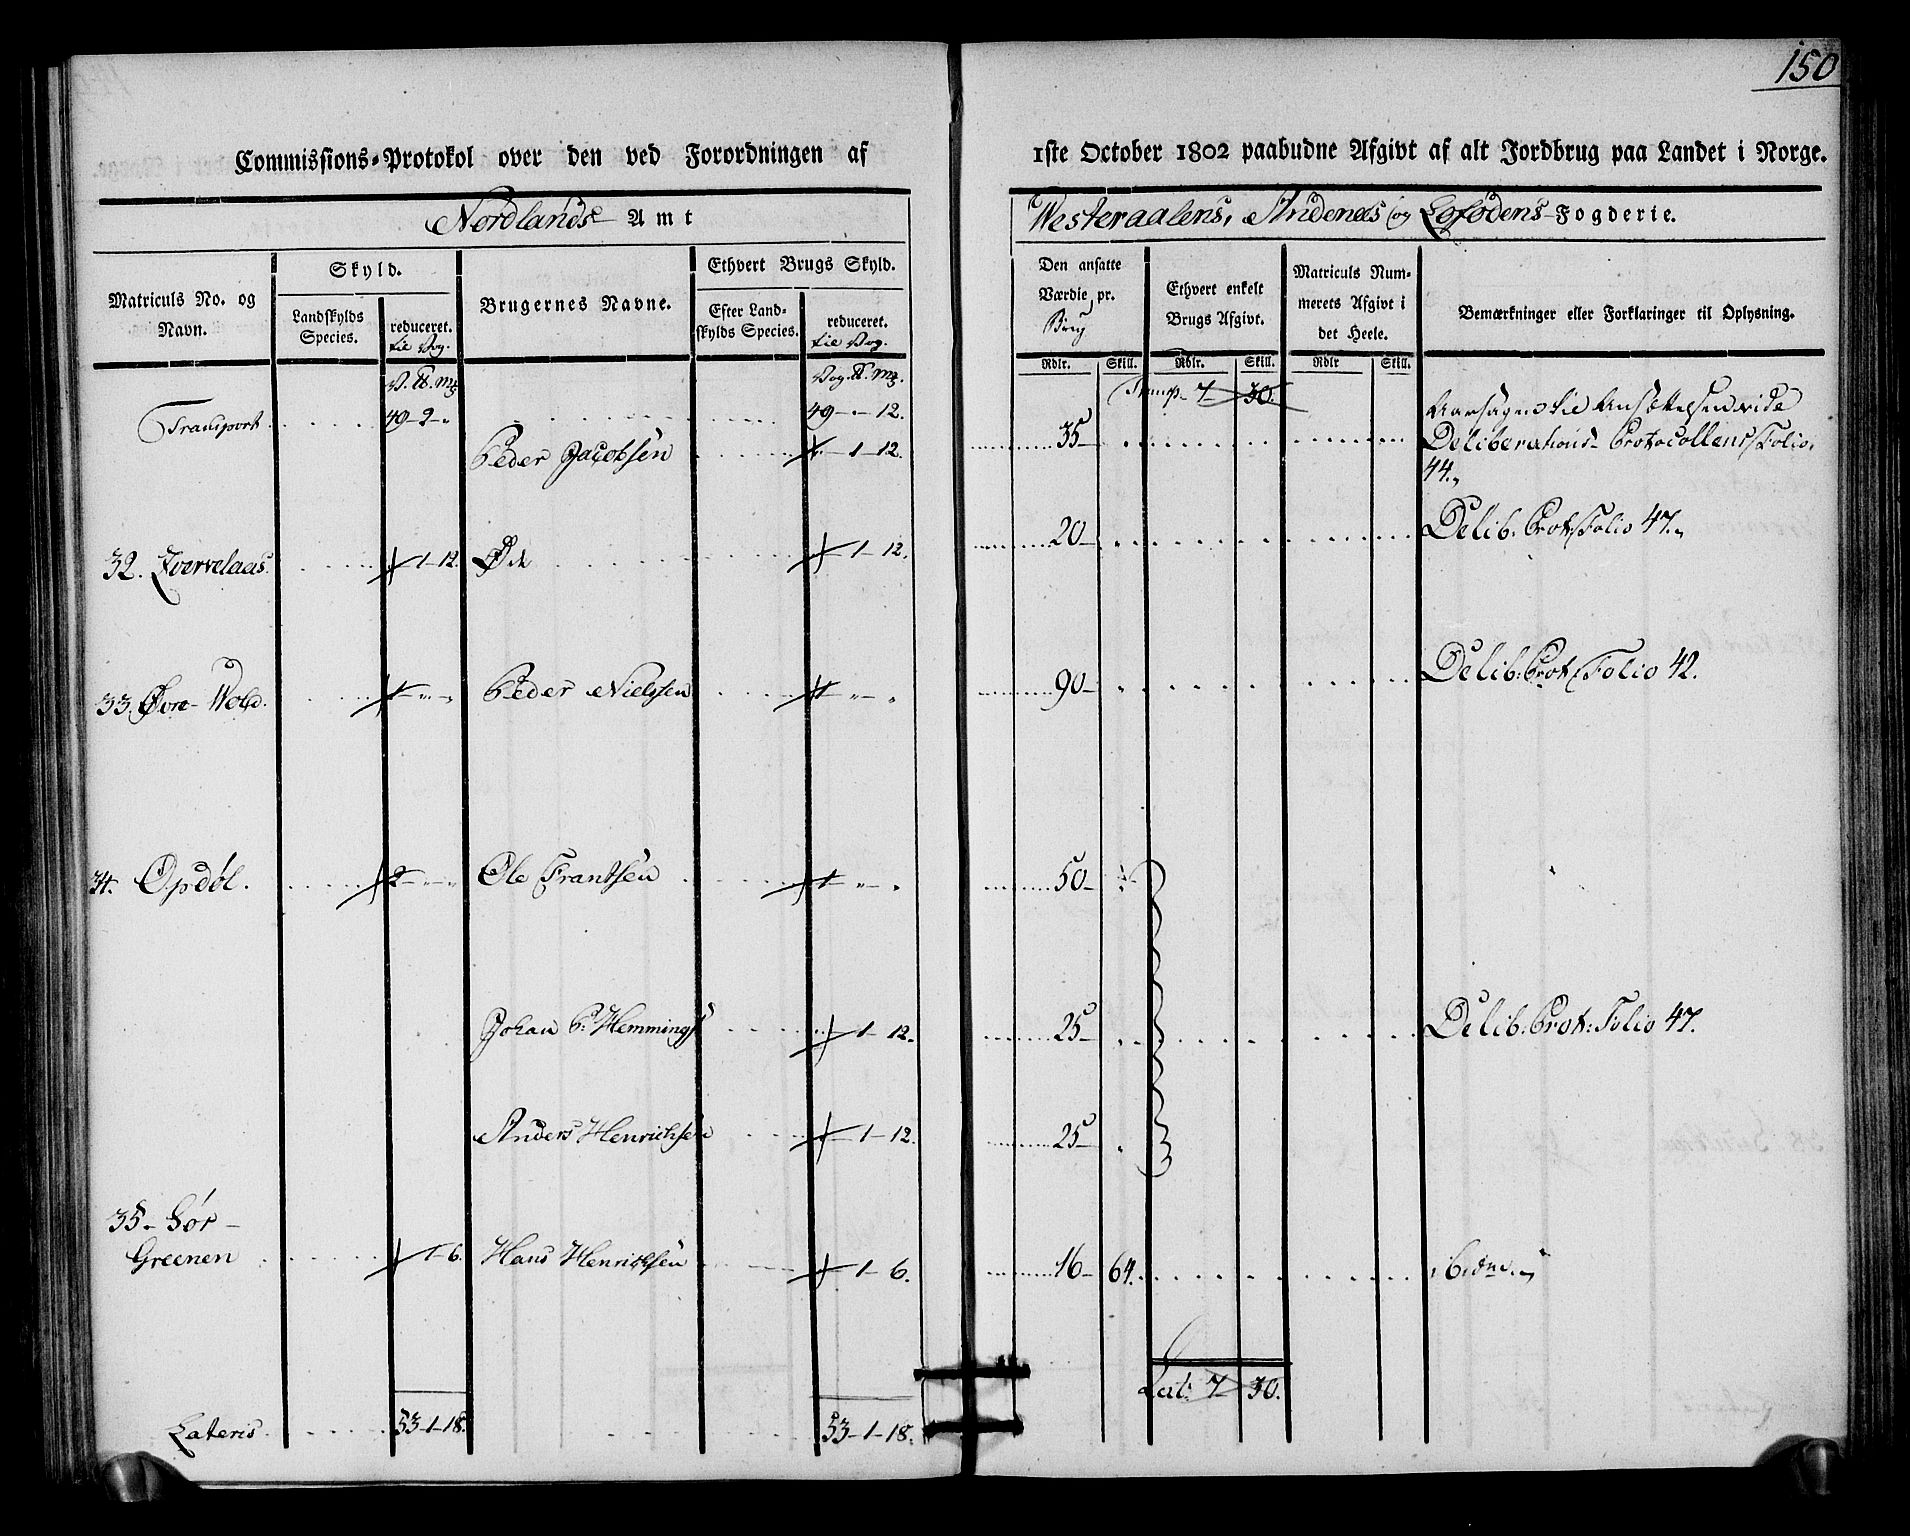 150
Commissions-Protokol over den ved Forordningen af 1ste October 1802 paabudne Afgivt af alt Jordbrug paa Landet i Norge.
Nordlands Amt
Westeraalens, Andenæs og Lofodens Fogderie.
Matriculs No. og Navn.
Skyld.
Landskylds Species.
reduceret. til Vog.
Brugernes Navne.
Ethvert Brugs Skyld.
Efter Landskylds Species.
reduceret. til Vog.
Den ansatte Værdie pr. Brug
Ethvert enkelt Brugs Afgivt.
Matriculs Nummerets Afgivt i det Heele.
Bemærkninger eller Forklaringer til Oplysning.
Rdlr. Skill. Rdlr. Skill. Rdlr Skill.
Transp. 7 30.
Transport 49-2-„ 49-„-12.
Peder Jacobsen 1-12. 35
Aarsagen til Ansættelsen vide
Deliberations Protocollens Folio.
44.„
32. 1-12. Øde 1-12. 20 Delib: Prot: Folio 47.„
33. Øvre-Wold. 1-„-„ Peder Nielssen 1-„-„ 90 Delib: Prot: Folio 42.
34. Opdøl. 2-„-„ Ole Frantsen 1-„-„ 50
Johan P: Hemmings 1-12. 25 Delib: Prot: Folio 47.
Anders Henrichsen 1-12. 25
35- Sør-
Greenen 1-6. Hans Henrichsen 1-6. 16 64.
Lat: 7 30.
Lateris 53-1-18. 53-1-18.